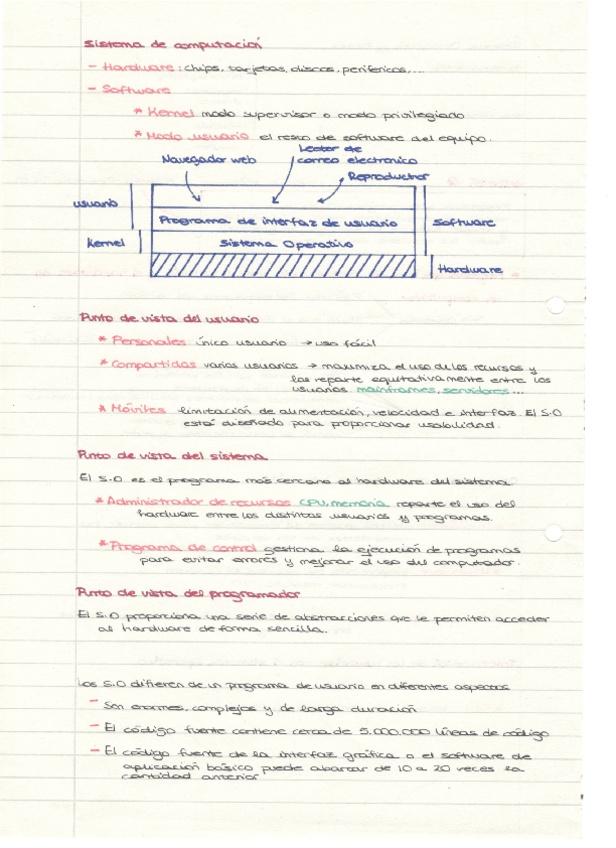 Sistema de computación
- Hardware: chips, tarjetas, discos, periféricos,...
- Software
* Kernel modo supervisor o modo privilegiado
* Modo usuario el resto de software del equipo.
Navegador web
Lector de
correo electrónico
Reproductor
usuario
Programa de interfaz de usuario
Software
Kernel
Sistema Operativo
Hardware
Punto de vista del usuario
* Personales único usuario → uso fácil
* Compartidas varios usuarios → maximiza el uso de los recursos y
los reparte equitativamente entre los
usuarios. mainframes, servidores...
* Móviles limitación de alimentación, velocidad e interfaz. El S.O
está diseñado para proporcionar usabilidad.
Punto de vista del sistema
El S.O es el programa más cercano al hardware del sistema
* Administrador de recursos CPU, memoria reparte el uso del
hardware entre los distintos usuarios y programas.
* Programa de control gestiona la ejecución de programas
para evitar errores y mejorar el uso del computador.
Punto de vista del programador
El S.O proporciona una serie de abstracciones que le permiten acceder
al hardware de forma sencilla.
Los S.O difieren de un programa de usuario en diferentes aspectos
- Son enormes, complejos y de larga duración
- El código fuente contiene cerca de 5.000.000 líneas de código
- El código fuente de la interfaz gráfica o el software de
aplicación básico puede abarcar de 10 a 20 veces la
cantidad anterior